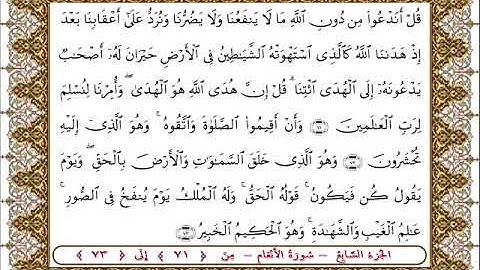 قُلْ أَنَدْعُوا۟ مِن دُونِ ٱللَّهِ مَا لَا يَنفَعُنَا وَلَا يَضُرُّنَا وَنُرَدُّ عَلَىٰٓ أَعْقَابِنَا بَعْدَ
إِذْ هَدَىٰنَا ٱللَّهُ كَٱلَّذِى ٱسْتَهْوَتْهُ ٱلشَّيَـٰطِينُ فِى ٱلْأَرْضِ حَيْرَانَ لَهُۥٓ أَصْحَـٰبٌ
يَدْعُونَهُۥٓ إِلَى ٱلْهُدَى ٱئْتِنَا ۗ قُلْ إِنَّ هُدَى ٱللَّهِ هُوَ ٱلْهُدَىٰ ۖ وَأُمِرْنَا لِنُسْلِمَ
لِرَبِّ ٱلْعَـٰلَمِينَ ﴿٧١﴾ وَأَنْ أَقِيمُوا۟ ٱلصَّلَوٰةَ وَٱتَّقُوهُ ۚ وَهُوَ ٱلَّذِىٓ إِلَيْهِ
تُحْشَرُونَ ﴿٧٢﴾ وَهُوَ ٱلَّذِى خَلَقَ ٱلسَّمَـٰوَٰتِ وَٱلْأَرْضَ بِٱلْحَقِّ ۖ وَيَوْمَ
يَقُولُ كُن فَيَكُونُ ۚ قَوْلُهُ ٱلْحَقُّ ۚ وَلَهُ ٱلْمُلْكُ يَوْمَ يُنفَخُ فِى ٱلصُّورِ ۚ
عَـٰلِمُ ٱلْغَيْبِ وَٱلشَّهَـٰدَةِ ۚ وَهُوَ ٱلْحَكِيمُ ٱلْخَبِيرُ ﴿٧٣﴾
الجزء السابع – سورة الأنعام – من ﴿ ٧١ ﴾ إلى ﴿ ٧٣ ﴾